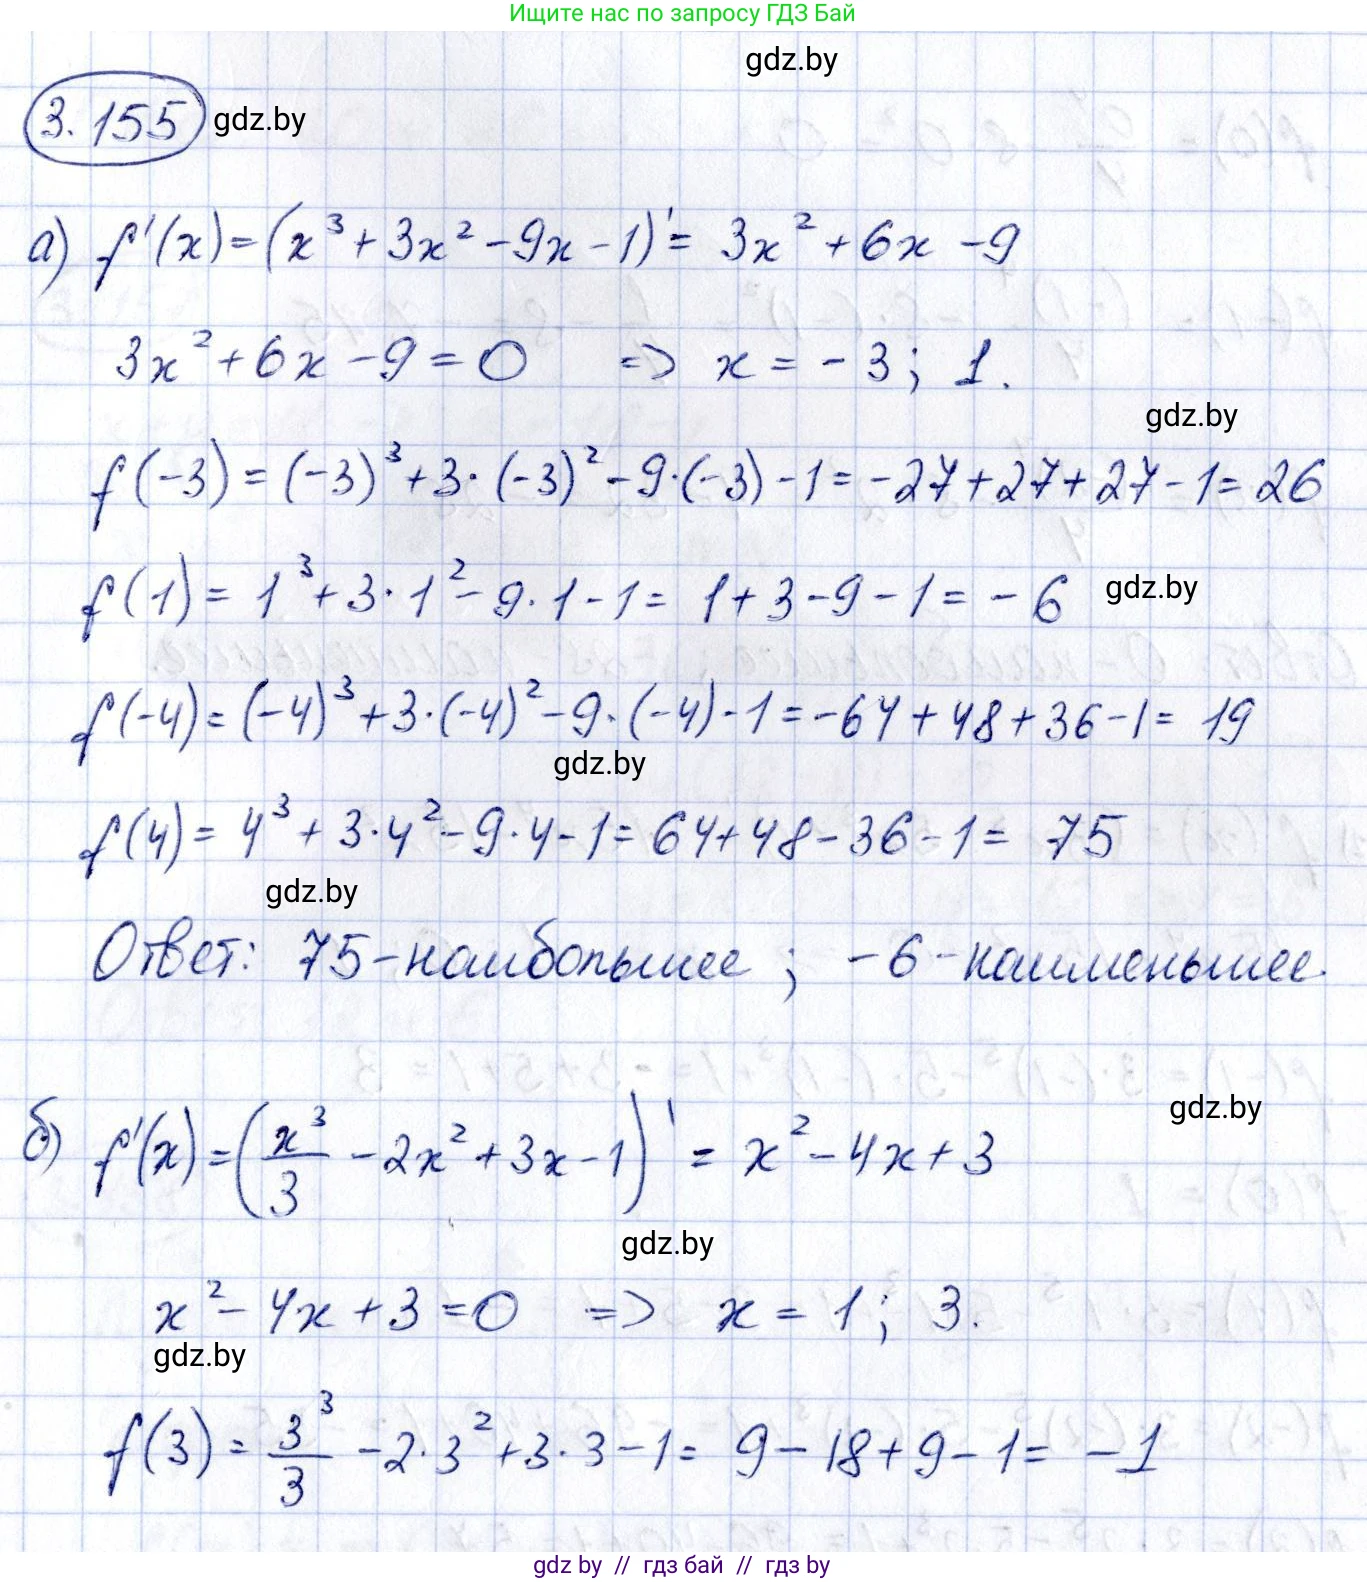 Ищите нас по запросу ГДЗ Бай
gdz.by
3.155 gdz.by
а) f'(x) = (x³ + 3x² - 9x - 1)' = 3x² + 6x - 9
3x² + 6x - 9 = 0 => x = -3; 1.
gdz.by
f(-3) = (-3)³ + 3·(-3)² - 9·(-3) - 1 = -27 + 27 + 27 - 1 = 26
f(1) = 1³ + 3·1² - 9·1 - 1 = 1 + 3 - 9 - 1 = -6 gdz.by
f(-4) = (-4)³ + 3·(-4)² - 9·(-4) - 1 = -64 + 48 + 36 - 1 = 19
gdz.by
f(4) = 4³ + 3·4² - 9·4 - 1 = 64 + 48 - 36 - 1 = 75
gdz.by
Ответ: 75 - наибольшее; -6 - наименьшее.
gdz.by
б) f'(x) = (x³/3 - 2x² + 3x - 1)' = x² - 4x + 3
gdz.by
x² - 4x + 3 = 0 => x = 1; 3.
gdz.by
f(3) = 3³/3 - 2·3² + 3·3 - 1 = 9 - 18 + 9 - 1 = -1
gdz by // гдз бай // гдз by